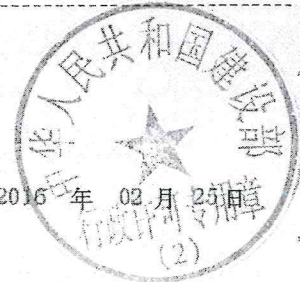 中华人民共和国建设部
2016 年 02 月 25日
行政许可专用章
(2)